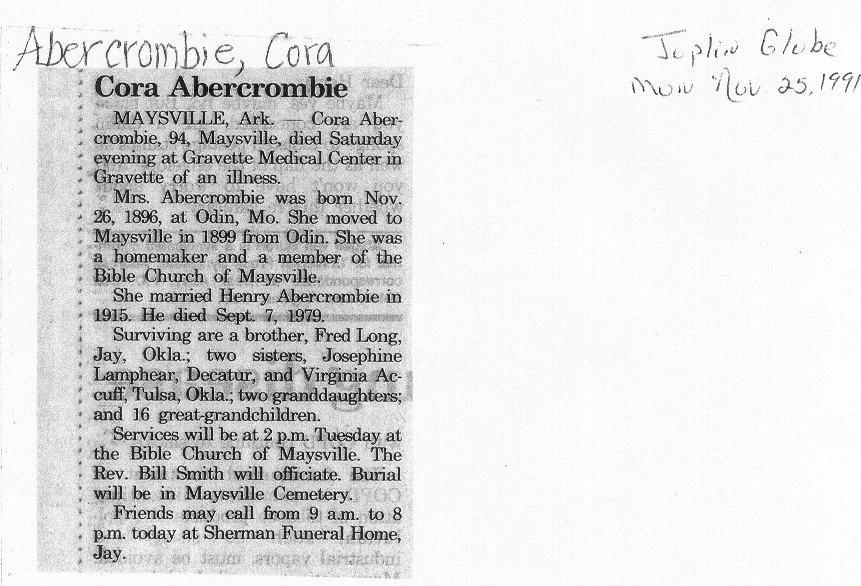 Abercrombie, Cora
Joplin Globe
Mon Nov. 25, 1991
Cora Abercrombie
MAYSVILLE, Ark. — Cora Aber-
crombie, 94, Maysville, died Saturday
evening at Gravette Medical Center in
Gravette of an illness.
Mrs. Abercrombie was born Nov.
26, 1896, at Odin, Mo. She moved to
Maysville in 1899 from Odin. She was
a homemaker and a member of the
Bible Church of Maysville.
She married Henry Abercrombie in
1915. He died Sept. 7, 1979.
Surviving are a brother, Fred Long,
Jay, Okla.; two sisters, Josephine
Lamphear, Decatur, and Virginia Ac-
cuff, Tulsa, Okla.; two granddaughters;
and 16 great-grandchildren.
Services will be at 2 p.m. Tuesday at
the Bible Church of Maysville. The
Rev. Bill Smith will officiate. Burial
will be in Maysville Cemetery.
Friends may call from 9 a.m. to 8
p.m. today at Sherman Funeral Home,
Jay.